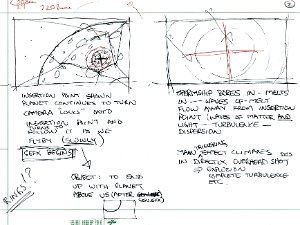 INSERTION POINT SHOWN
PLANET CONTINUES TO TURN
CAMERA LOCKS ONTO
INSERTION POINT AND
FOLLOW IT AS WE
FLYBY (SLOWLY)
BEGINS
OBJECT: TO END
UP WITH PLANET
ABOVE US (AFTER
RINGS!?
2
SPERMSHIP BORES IN - MELTS
IN - WAVES OF MELT
FLOW AWAY FROM INSERTION
POINT (WAVES OF MATTER AND
LIGHT - TURBULENCE -
DISPERSION
MAIN EFFECT CLIMAXES
IN DIRECTLY OVERHEAD SHOT
OF EXPLOSION
COMPLETE TURBULENCE
ETC.